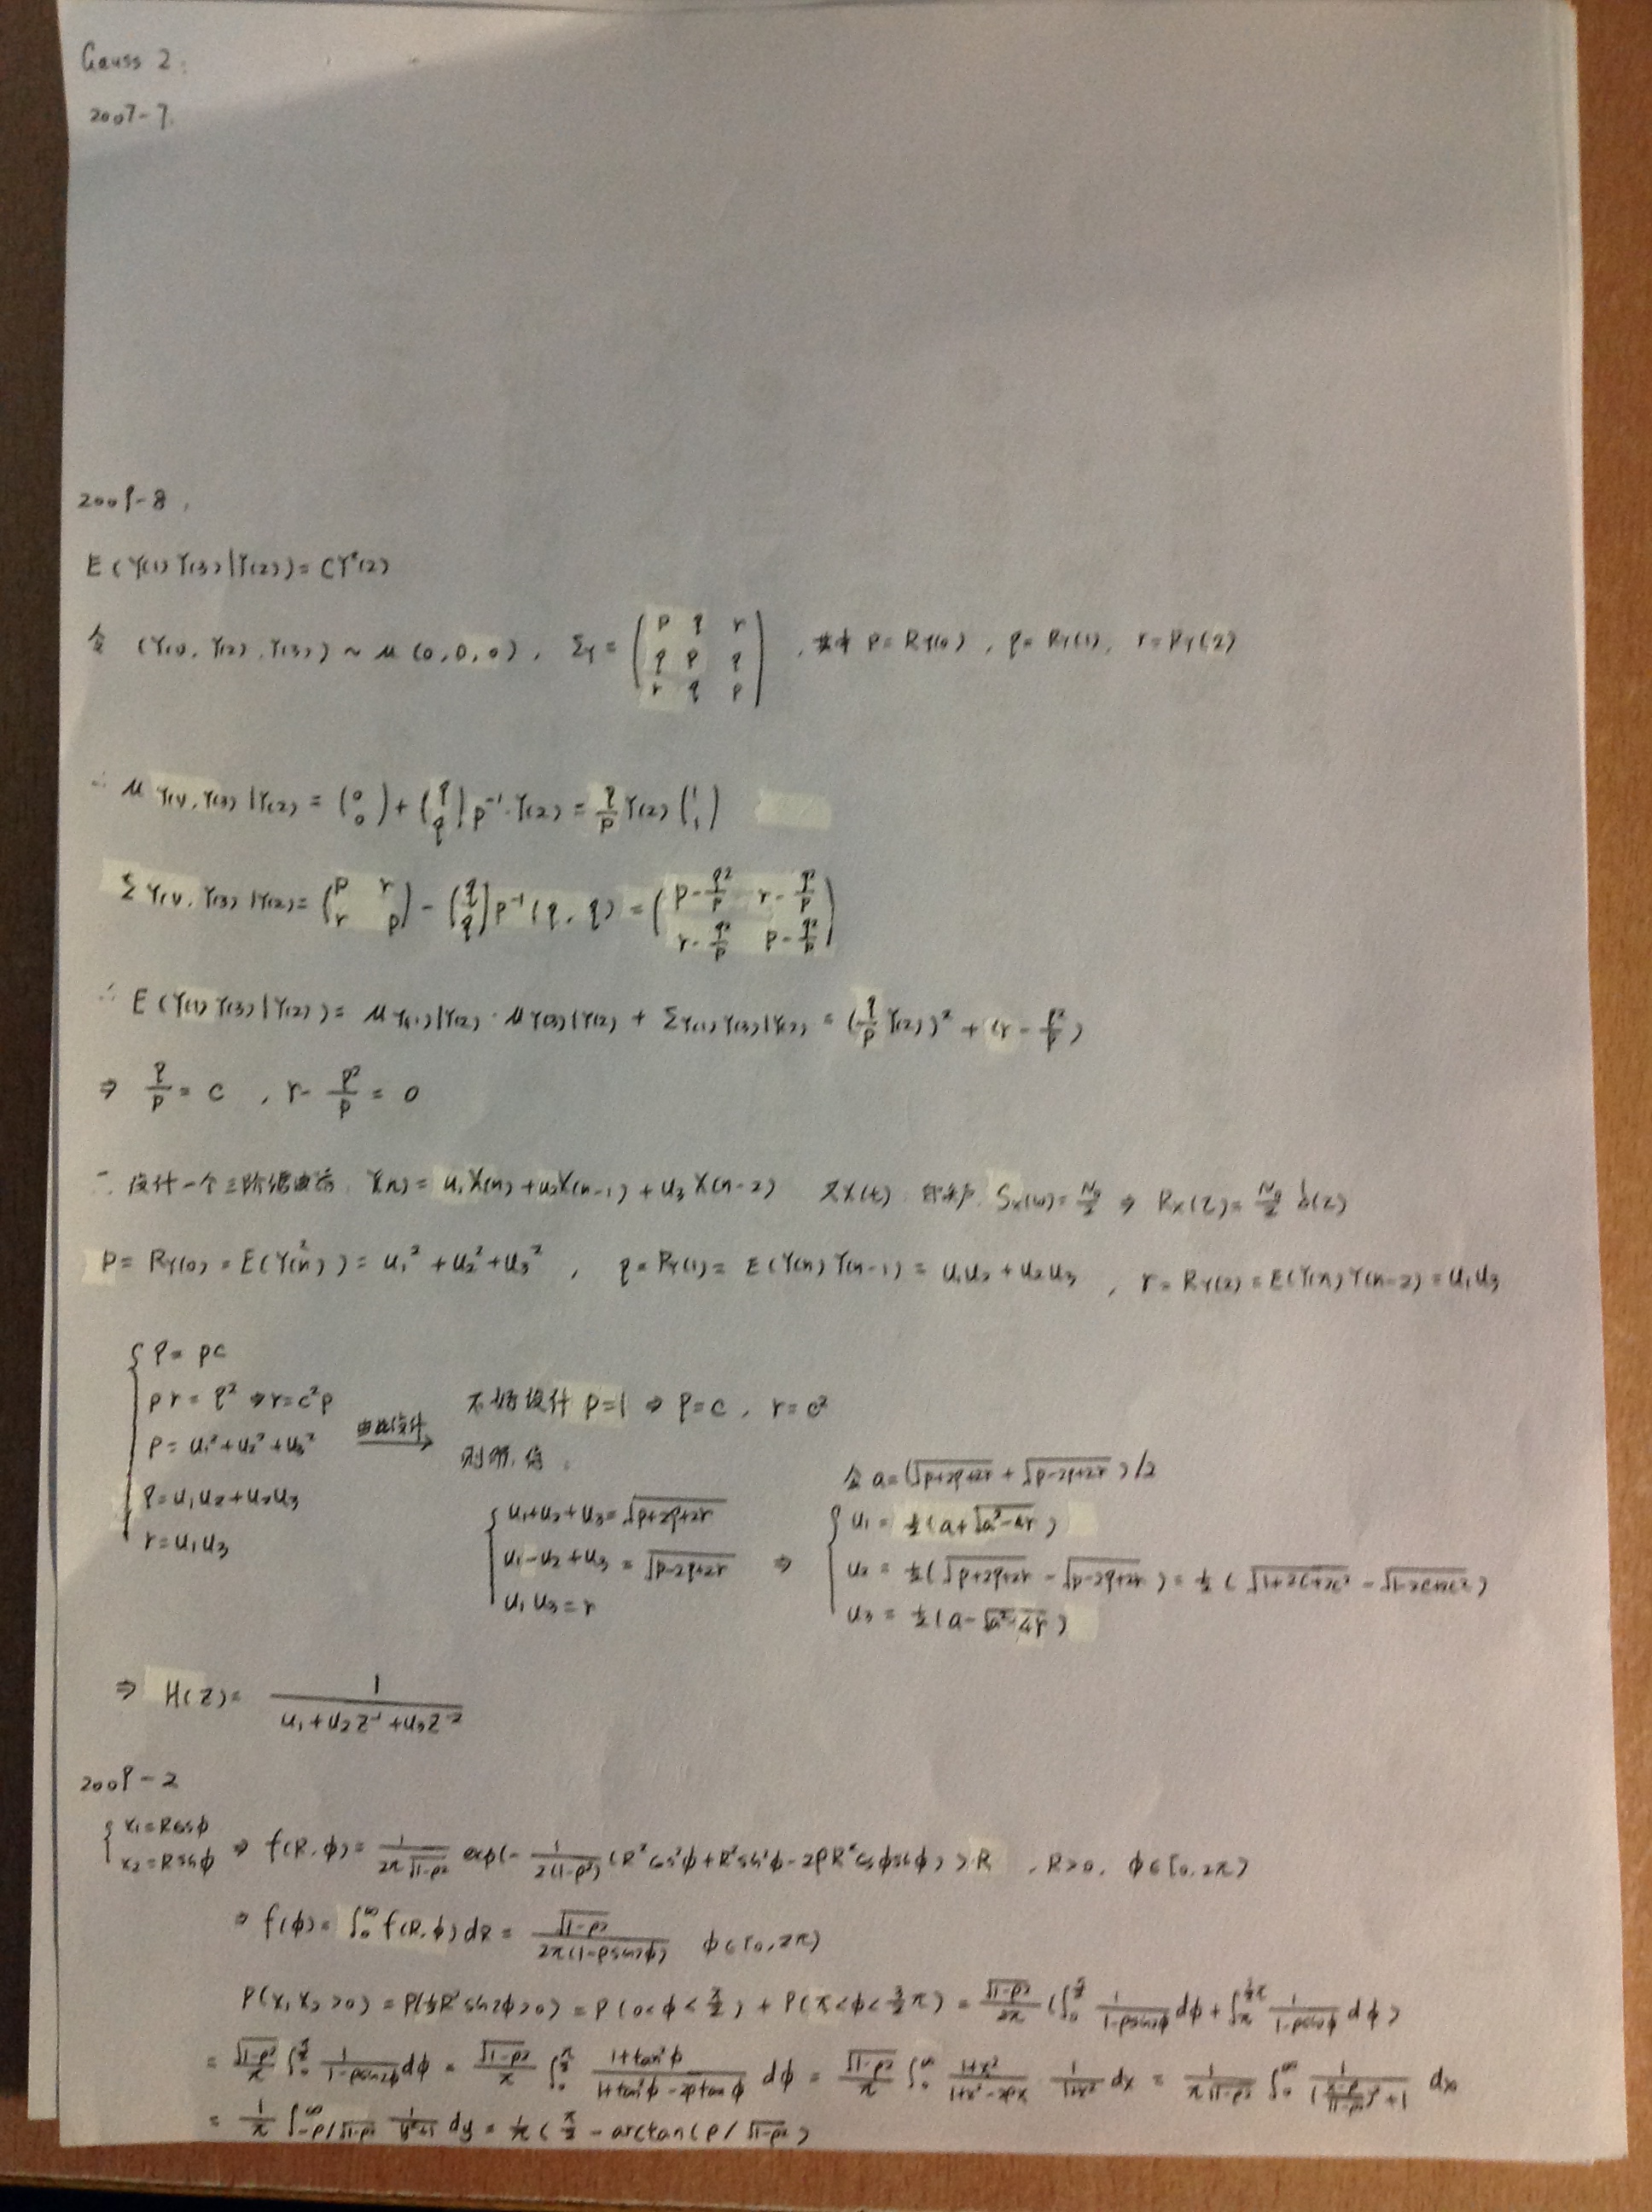 Gauss 2.
2007-7.
2009-8.
E(Y(1)Y(3)|Y(2)) = CY²(2)
令 (Y(1), Y(2), Y(3)) ~ μ(0,0,0), Σ_Y = (p q r; q p q; r q p), 其中 p=R_Y(0), q=R_Y(1), r=R_Y(2)
∴ μ_{Y(1),Y(3)|Y(2)} = (0 0) + (q q) p⁻¹·Y(2) = q/p Y(2) (1 1)
Σ_{Y(1),Y(3)|Y(2)} = (p r; r p) - (q q) p⁻¹ (q, q) = (p-q²/p r-q²/p; r-q²/p p-q²/p)
∴ E(Y(1)Y(3)|Y(2)) = μ_{Y(1)|Y(2)} · μ_{Y(3)|Y(2)} + Σ_{Y(1)Y(3)|Y(2)} = (q/p Y(2))² + (r - q²/p)
⇒ q/p = c, r - q²/p = 0
∴ 设计一个三阶滤波器, Y(n) = u₁X(n) + u₂X(n-1) + u₃X(n-2) S_X(ω) = N₀/2 ⇒ R_X(τ) = N₀/2 δ(τ)
p = R_Y(0) = E(Y²(n)) = u₁² + u₂² + u₃², q = R_Y(1) = E(Y(n)Y(n-1)) = u₁u₂ + u₂u₃, r = R_Y(2) = E(Y(n)Y(n-2)) = u₁u₃
{ q = pc
pr = q² ⇒ r = c²p
p = u₁² + u₂² + u₃²
q = u₁u₂ + u₂u₃
r = u₁u₃
不妨设计 p=1 ⇒ q=c, r=c²
{ u₁+u₂+u₃ = √(p+2q+2r)
u₁-u₂+u₃ = √(p-2q+2r) ⇒
u₁u₃ = r
令 a = (√(p+2q+2r) + √(p-2q+2r))/2
{ u₁ = ½(a+√(a²-4r))
u₂ = ½(√(p+2q+2r) - √(p-2q+2r)) = ½(√(1+2c+2c²) - √(1-2c+2c²))
u₃ = ½(a-√(a²-4r))
⇒ H(Z) = 1/(u₁+u₂Z⁻¹+u₃Z⁻²)
2009-2
{ x₁=Rcosφ
x₂=Rsinφ ⇒ f(R,φ) = 1/(2π√(1-ρ²)) exp(-1/(2(1-ρ²)) (R²cos²φ+R²sin²φ-2ρR²cosφsinφ))R, R>0, φ∈[0,2π)
⇒ f(φ) = ∫₀^∞ f(R,φ)dR = √(1-ρ²)/(2π(1-ρsin2φ)) φ∈[0,2π)
P(x₁x₂>0) = P(½R²sin2φ>0) = P(0<φ<π/2) + P(π<φ<3/2π) = √(1-ρ²)/2π (∫₀^{π/2} 1/(1-ρsin2φ) dφ + ∫_π^{3/2π} 1/(1-ρsin2φ) dφ)
= √(1-ρ²)/π ∫₀^{π/2} 1/(1-ρsin2φ) dφ = √(1-ρ²)/π ∫₀^{π/2} (1+tan²φ)/(1+tan²φ-2ρtanφ) dφ = √(1-ρ²)/π ∫₀^∞ (1+x²)/(1+x²-2ρx) · 1/(1+x²) dx = 1/(π√(1-ρ²)) ∫₀^∞ 1/(((x-ρ)/√(1-ρ²))²+1) dx
= 1/π ∫_{-ρ/√(1-ρ²)}^∞ 1/(y²+1) dy = 1/π (π/2 - arctan(ρ/√(1-ρ²))